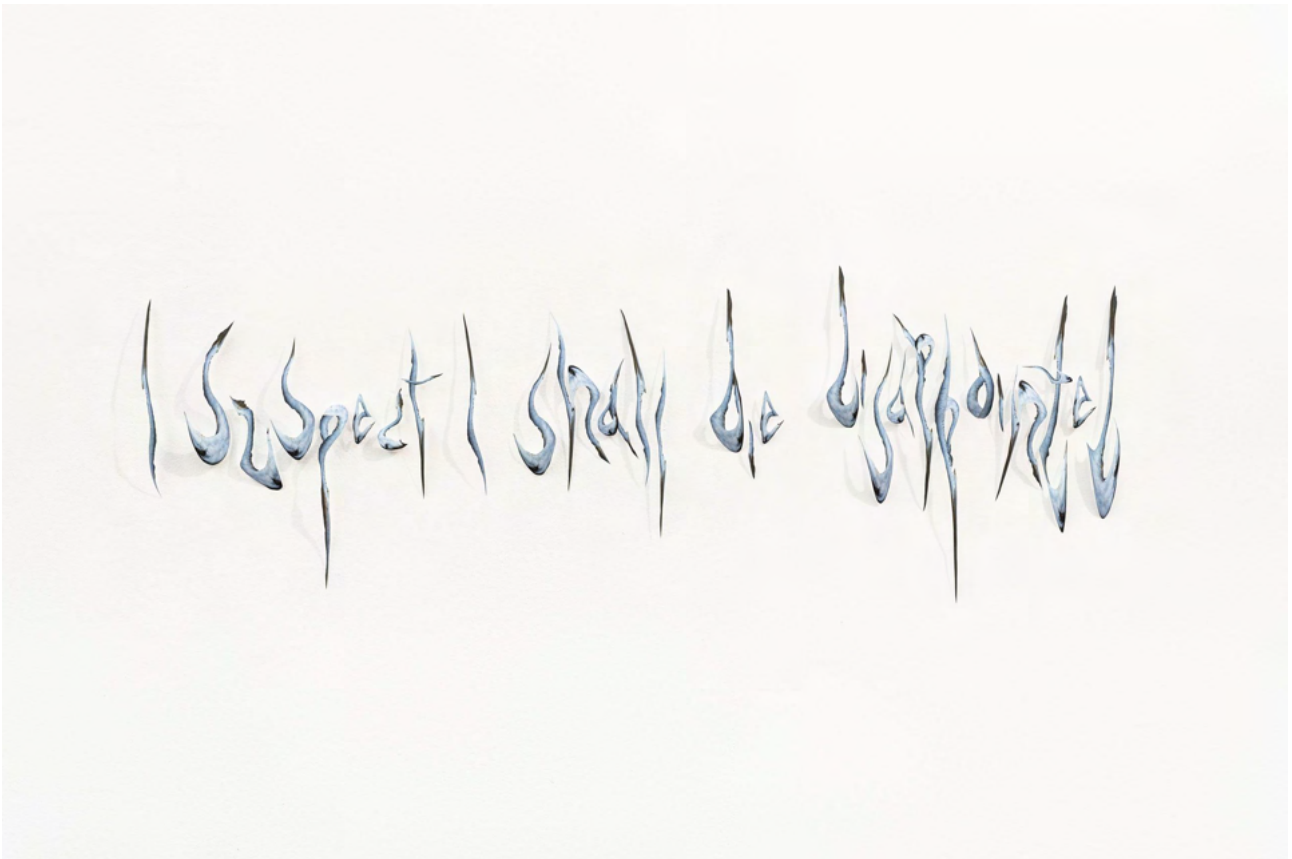 I suspect I shall die disappointed